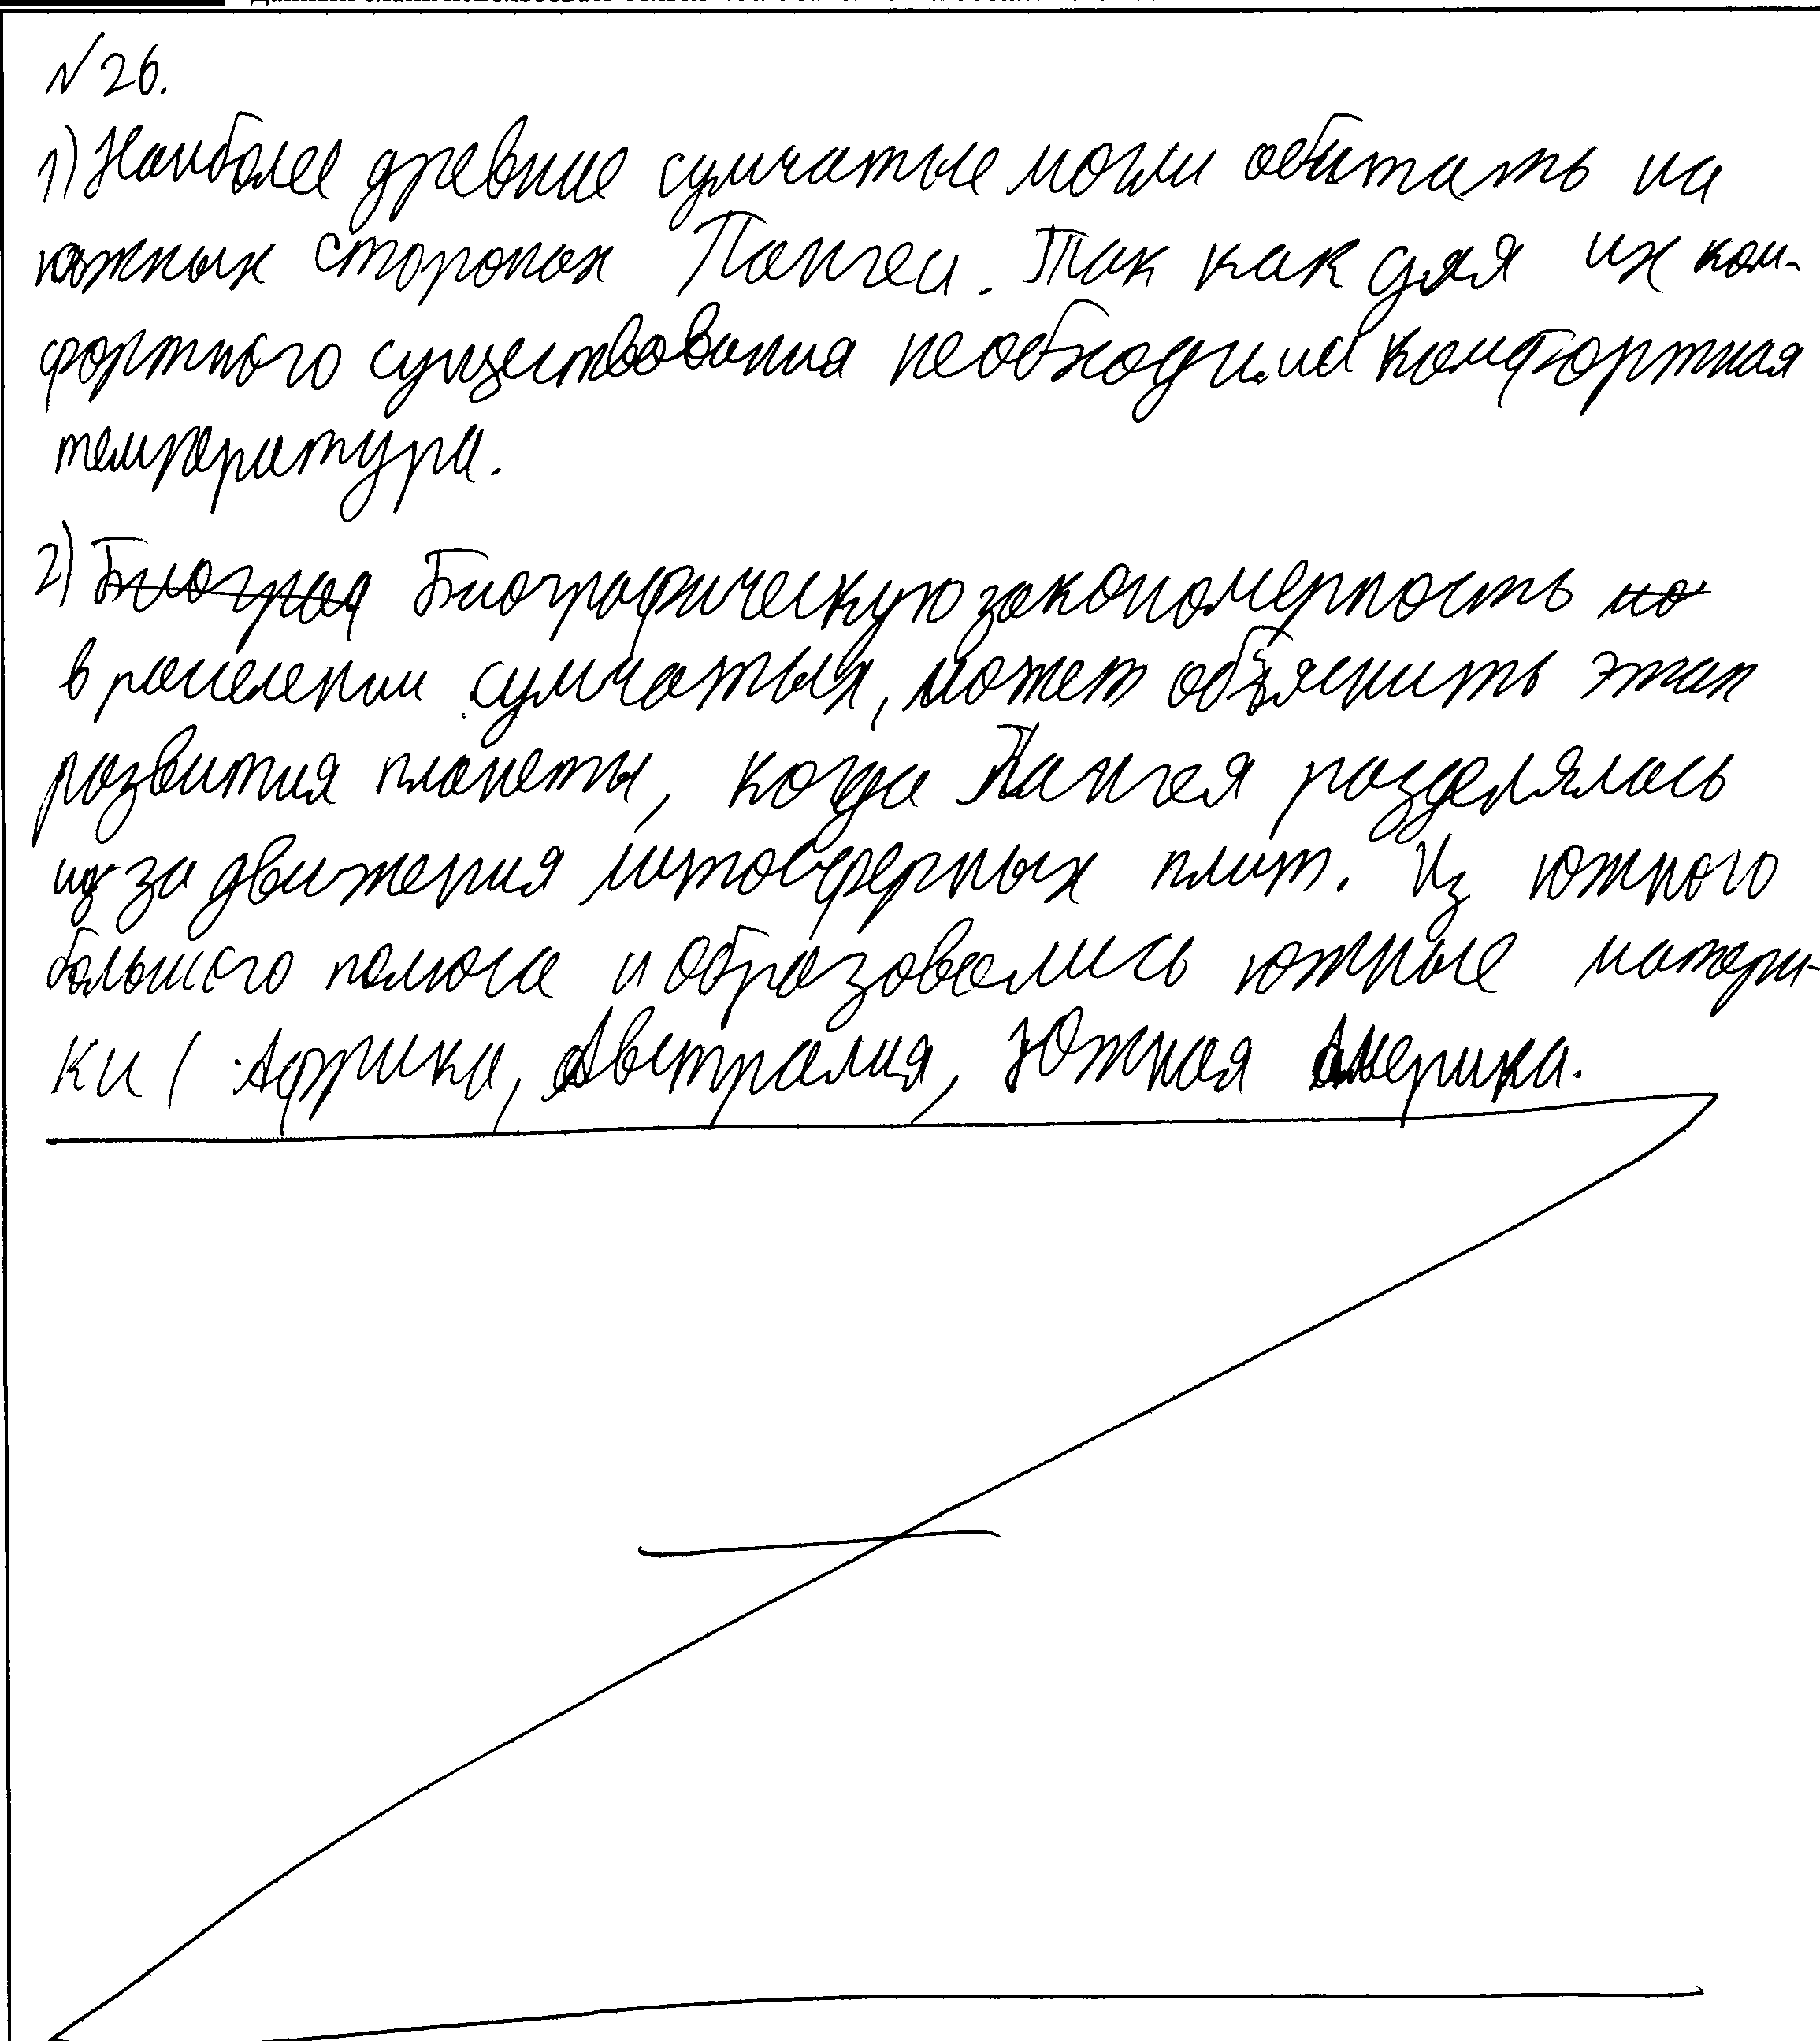 №26.
1) Наиболее древние сумчатые могли обитать на
южных сторонах Пангеи. Так как для их ком-
фортного существования необходима комфортная
температура.
2) Биограф Биографическую закономерность но
в расселении сумчатых, может объяснить этап
развития планеты, когда Пангея разделялась
из за движения литосферных плит. Из южного
большего полюса и образовались южные матери-
ки ( Африка, Австралия, Южная Америка.